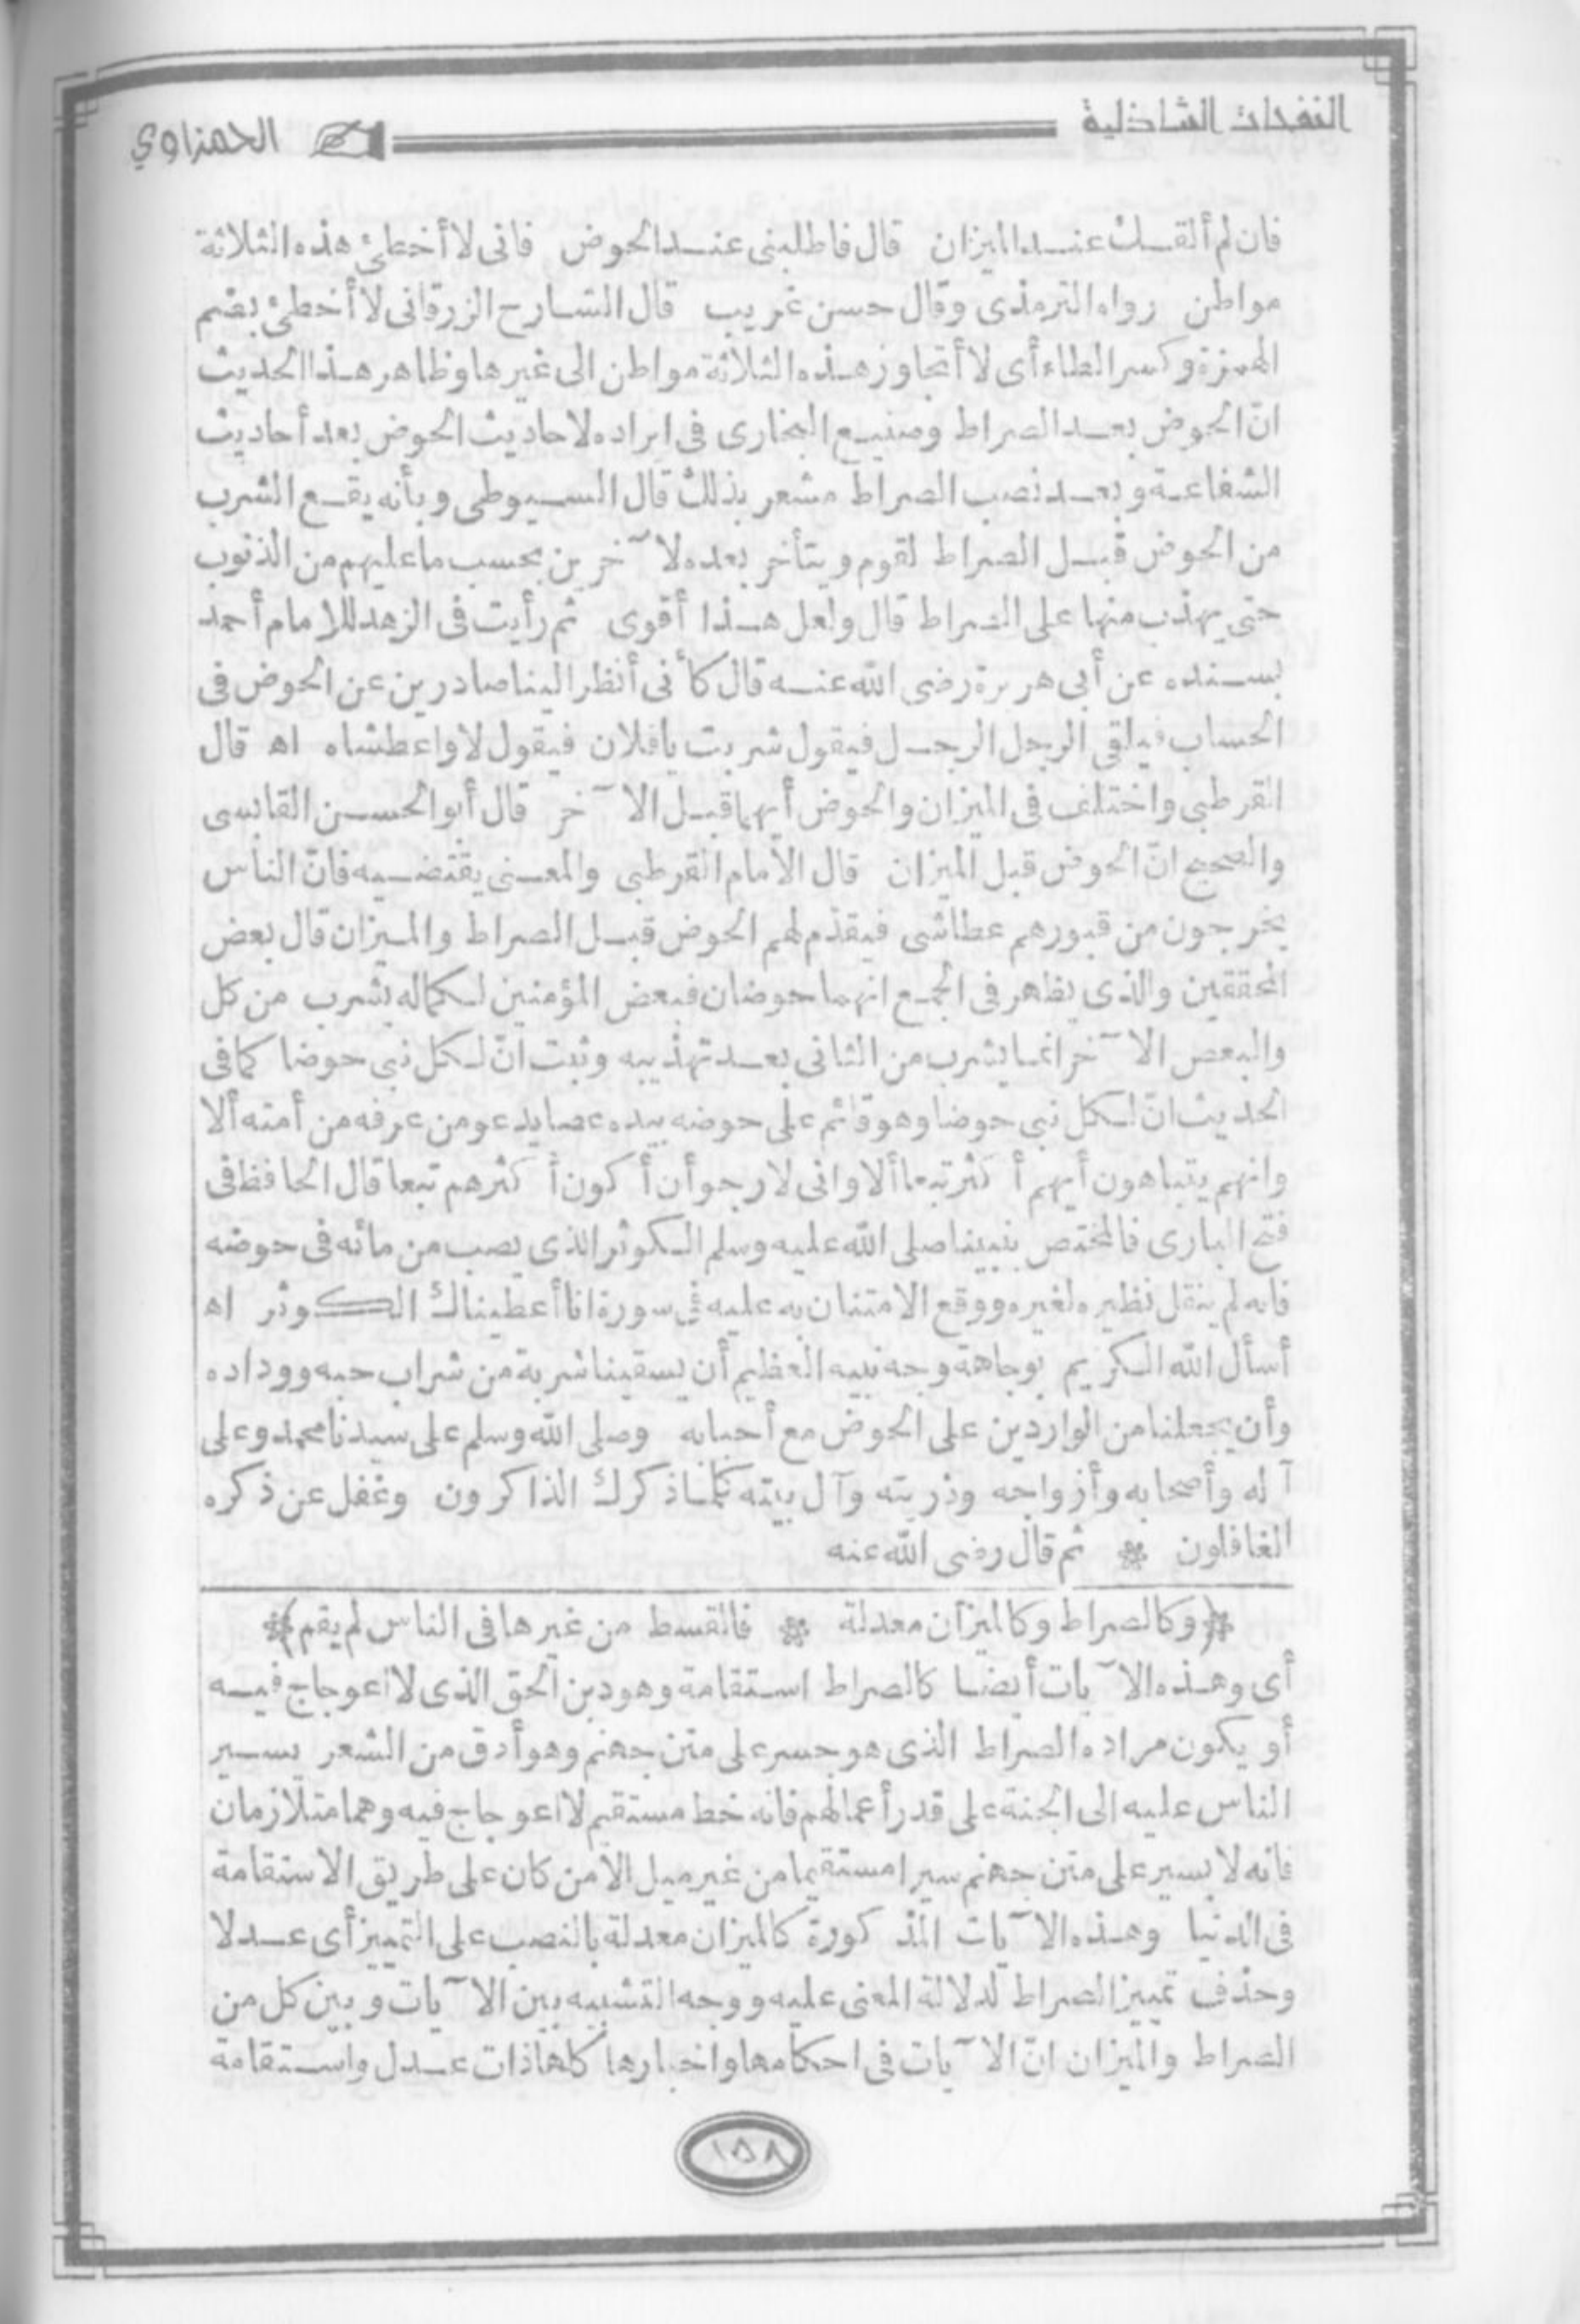 النفحات الشاذلية
الحمزاوي
فان لم ألقك عند الميزان قال فاطلبنى عند الحوض فانى لا أخطئ هذه الثلاثة
مواطن رواه الترمذى وقال حسن غريب قال الشارح الزرقانى لا أخطئ بضم
الهمزة وكسر الطاء أى لا أتجاوز هذه الثلاثة مواطن الى غيرها وظاهر هذا الحديث
انّ الحوض بعد الصراط وصنيع البخارى فى ايراده لاحاديث الحوض بعد أحاديث
الشفاعة وبعد نصب الصراط مشعر بذلك قال السيوطى وبأنه يقع الشرب
من الحوض قبل الصراط لقوم ويتأخر بعده لآخرين بحسب ما عليهم من الذنوب
حتى يهذب منها على الصراط قال ولعل هذا أقوى ثم رأيت فى الزهد للامام أحمد
بسنده عن أبى هريرة رضى الله عنه قال كأنى أنظر الينا صادرين عن الحوض فى
الحساب فيلقى الرجل الرجل فيقول شربت يا فلان فيقول لا واعطشاه اه قال
القرطبى واختلف فى الميزان والحوض أيهما قبل الآخر قال أبو الحسن القابسى
والصحيح انّ الحوض قبل الميزان قال الامام القرطبى والمعنى يقتضيه فانّ الناس
يخرجون من قبورهم عطاشى فيقدّم لهم الحوض قبل الصراط والميزان قال بعض
المحققين والذى يظهر فى الجمع انهما حوضان فبعض المؤمنين لكماله يشرب من كل
والبعض الآخر انما يشرب من الثانى بعد تهذيبه وثبت انّ لكل نبى حوضا كما فى
الحديث انّ لكل نبى حوضا وهو قائم على حوضه بيده عصا يدعو من عرفه من أمته ألا
وانهم يتباهون أيهم أكثر تبعا ألا وانى لارجو أن أكون أكثرهم تبعا قال الحافظ فى
فتح البارى فالمختص بنبينا صلى الله عليه وسلم الكوثر الذى يصب من مائه فى حوضه
فانه لم ينقل نظيره لغيره ووقع الامتنان به عليه فى سورة انا أعطيناك الكوثر اه
أسأل الله الكريم بوجاهة وجه نبيه العظيم أن يسقينا شربة من شراب حبه ووداده
وأن يجعلنا من الواردين على الحوض مع أحبابه وصلى الله وسلم على سيدنا محمد وعلى
آله وأصحابه وأزواجه وذريته وآل بيته كلما ذكرك الذاكرون وغفل عن ذكره
الغافلون * ثم قال رضى الله عنه
*(وكالصراط وكالميزان معدلة * فالقسط من غيرها فى الناس لم يقم)*
أى وهذه الآيات أيضا كالصراط استقامة وهو دين الحق الذى لا اعوجاج فيه
أو يكون مراده الصراط الذى هو جسر على متن جهنم وهو أدق من الشعر يسير
الناس عليه الى الجنة على قدر أعمالهم فانه خط مستقيم لا اعوجاج فيه وهما متلازمان
فانه لا يسير على متن جهنم سيرا مستقيما من غير ميل الا من كان على طريق الاستقامة
فى الدنيا وهذه الآيات المذكورة كالميزان معدلة بالنصب على التمييز أى عدلا
وحذف تمييز الصراط لدلالة المعنى عليه ووجه التشبيه بين الآيات وبين كل من
الصراط والميزان انّ الآيات فى احكامها واخبارها كلها ذات عدل واستقامة
١٥٨